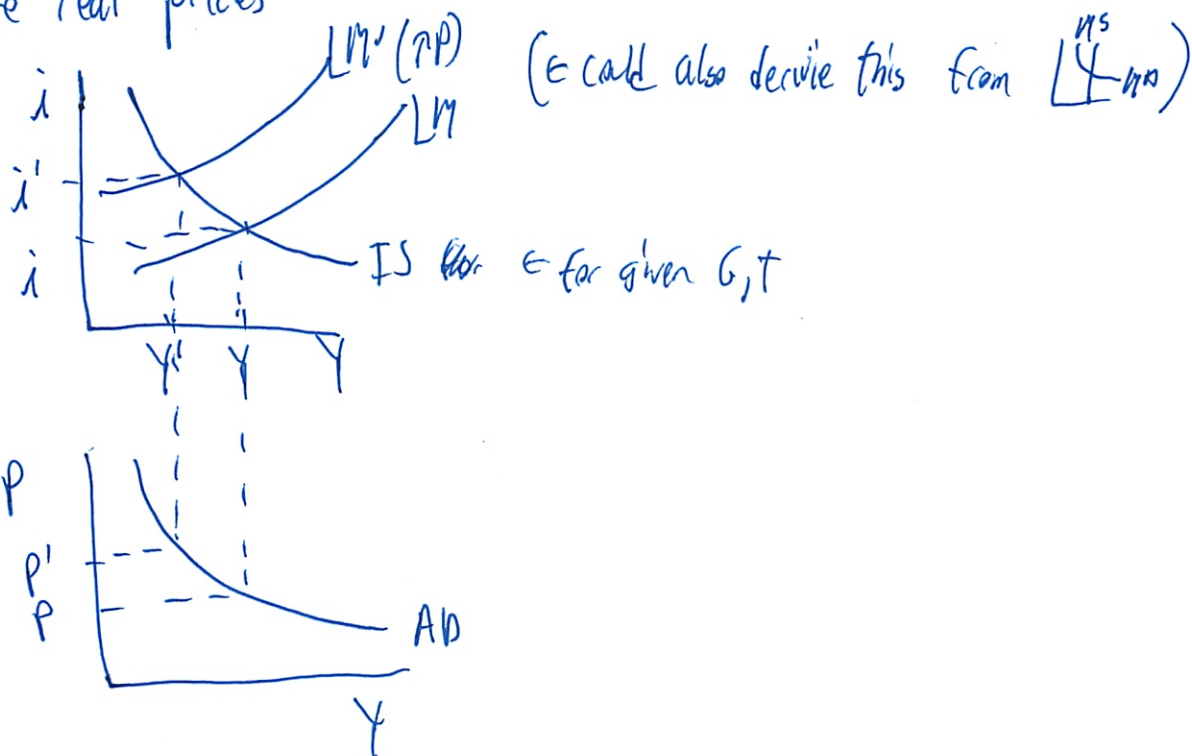 real prices
LM' (↑P)
(← could also derive this from MS MD)
i
LM
i'
i
IS ← for given G, t
Y' Y Y
P
P'
P
AD
Y